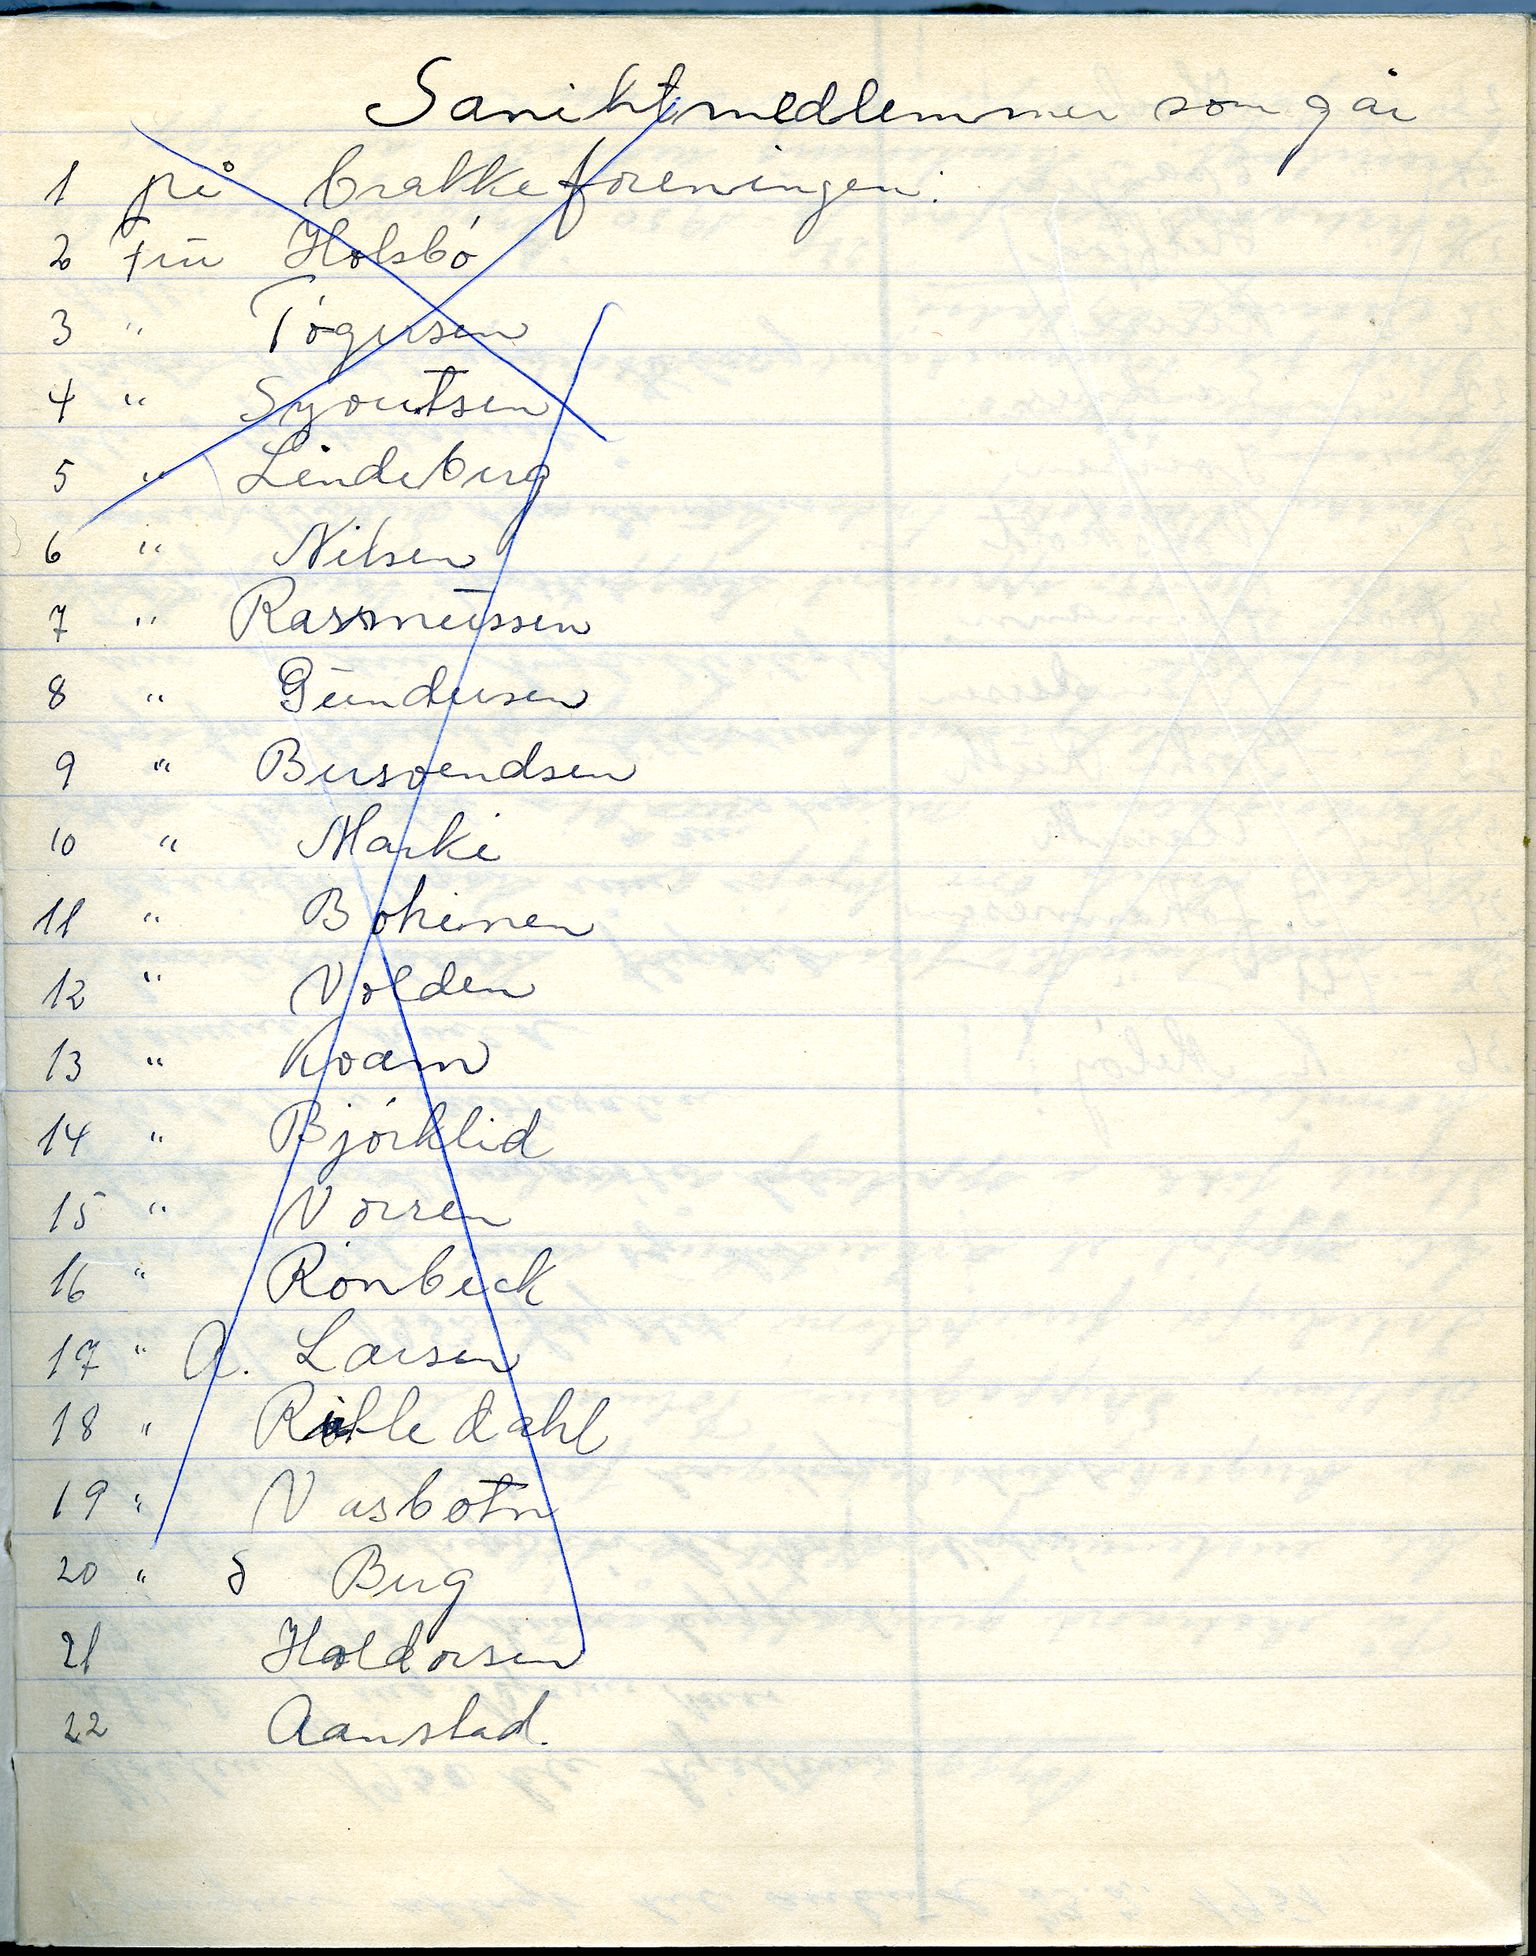 Sanitetmedlemmer som går
1 på brakkeforeningen.
2 Fru Holsbó
3 " Tógersen
4 " Syvertsen
5 " Lindeberg
6 " Nilsen
7 " Rassmussen
8 " Gundersen
9 " Bersvendsen
10 " Marki
11 " Bohinen
12 " Volden
13 " Kvam
14 " Bjórklid
15 " Vorren
16 " Rónbeck
17 " A. Larsen
18 "
19 " Vasbotn
20 " Berg
21 Haldorsen
22 Aanstad.